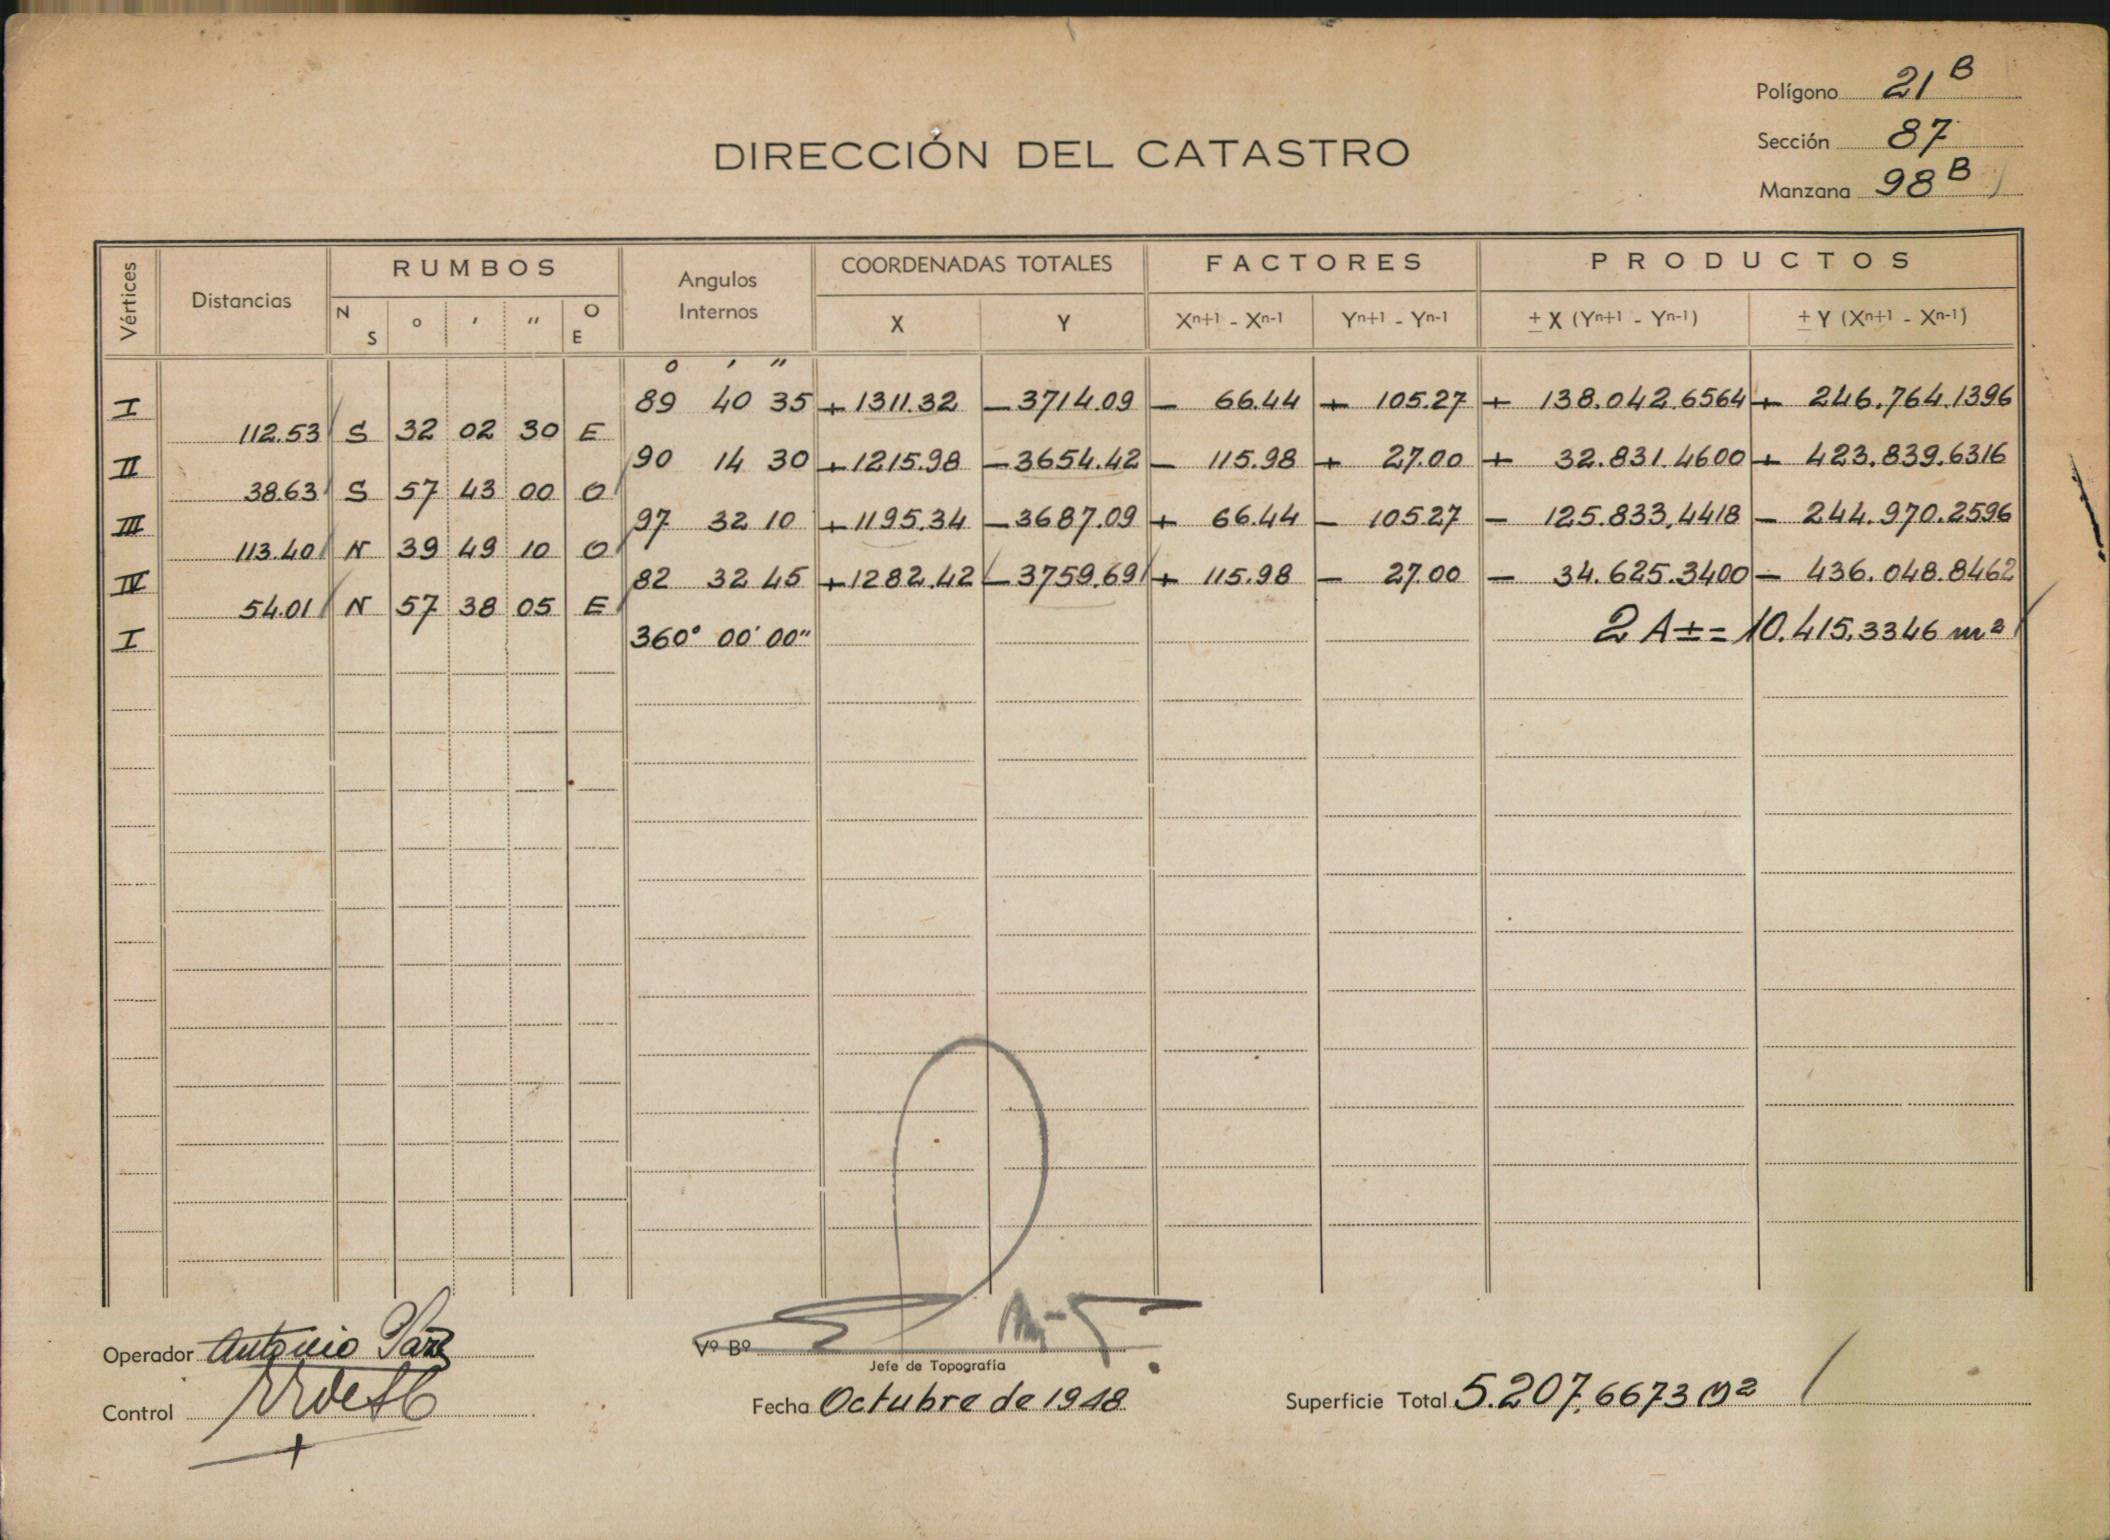 Polígono 21 B
DIRECCIÓN DEL CATASTRO
Sección 87
Manzana 98 B
Vértices Distancias RUMBOS Angulos Internos COORDENADAS TOTALES FACTORES PRODUCTOS
N S ° ' " O E X Y Xn+1 - Xn-1 Yn+1 - Yn-1 ± X (Yn+1 - Yn-1) ± Y (Xn+1 - Xn-1)
° ' "
I 89 40 35 + 1311.32 - 3714.09 - 66.44 + 105.27 + 138.042.6564 + 246.764.1396
112.53 S 32 02 30 E
II 90 14 30 + 1215.98 - 3654.42 - 115.98 + 27.00 + 32.831.4600 + 423.839.6316
38.63 S 57 43 00 O
III 97 32 10 + 1195.34 - 3687.09 + 66.44 - 105.27 - 125.833,4418 - 244.970.2596
113.40 N 39 49 10 O
IV 82 32 45 + 1282.42 - 3759.69 + 115.98 - 27.00 - 34.625.3400 - 436.048.8462
54.01 N 57 38 05 E
I 360° 00' 00" 2 A ± = 10.415,3346 m²
Operador Antonio
Vº Bº
Jefe de Topografía
Control
Fecha Octubre de 1948
Superficie Total 5.207,6673 m²